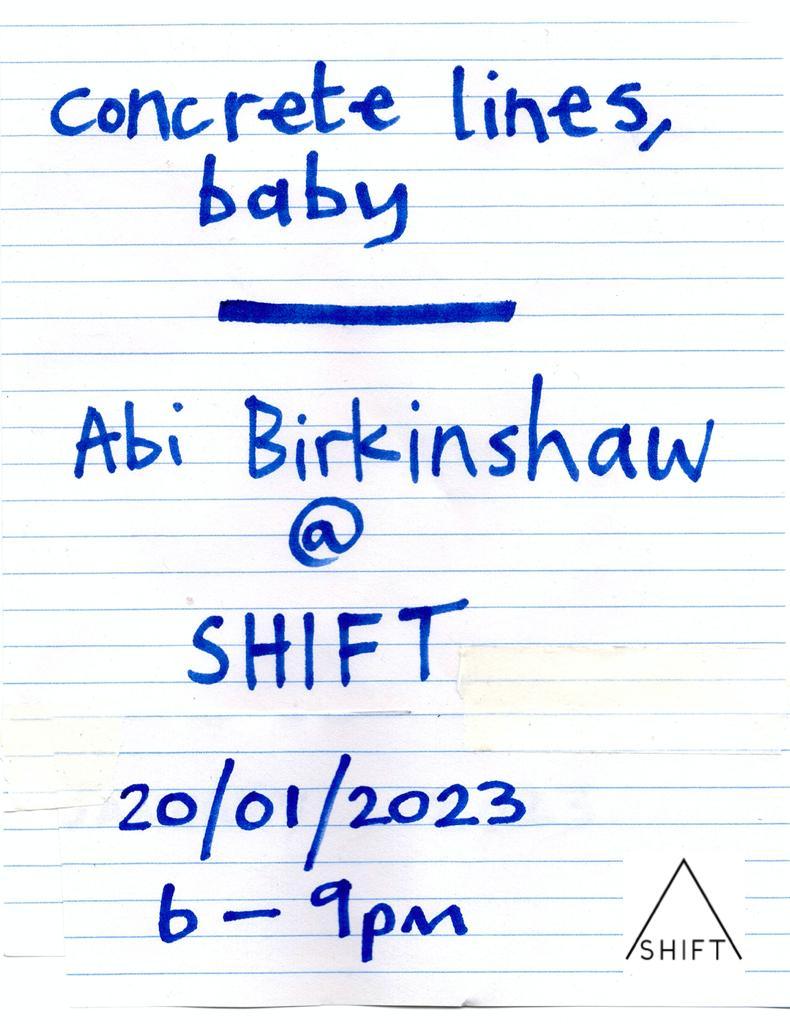 concrete lines,
baby
Abi Birkinshaw
@
SHIFT
20/01/2023
6 – 9pm
SHIFT